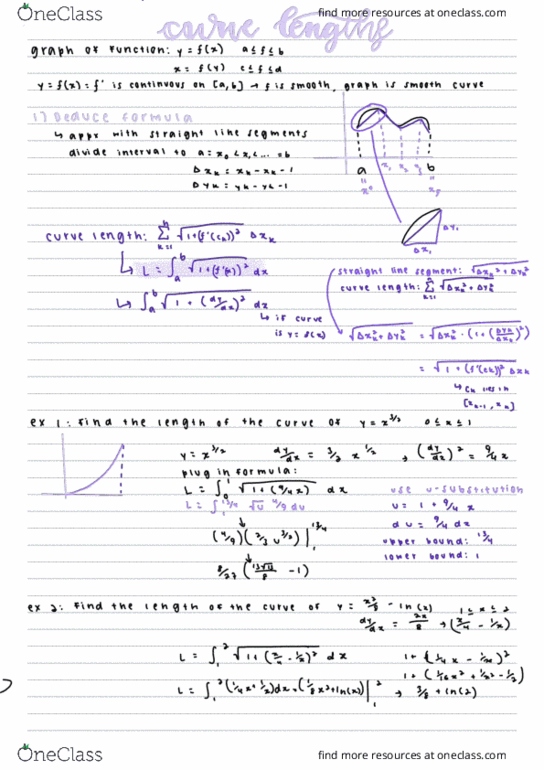 OneClass
find more resources at oneclass.com
curve lengths
graph of function: y = f(x) a ≤ f ≤ b
x = f(y) c ≤ f ≤ d
y = f(x) = f' is continuous on [a,b] → f is smooth, graph is smooth curve
1) Deduce formula
↳ appx with straight line segments
divide interval to a = x₀ < x₁ < ... = b
Δxₖ = xₖ - xₖ - 1
Δyₖ = yₖ - yₖ - 1
a
b
x₁
Δy₁
Δx₁
curve length: Σ k=1 n √(1+(f'(cₖ))²) Δxₖ
↳ L = ∫ₐᵇ √(1+(f'(x))²) dx
↳ ∫ₐᵇ √(1 + (dy/dx)²) dx
↳ if curve
is y = f(x)
straight line segment: √(Δxₖ² + Δyₖ²)
curve length: Σ k=1 n √(Δxₖ² + Δyₖ²)
√(Δxₖ² + Δyₖ²) = √(Δxₖ² · (1 + (Δyₖ/Δxₖ)²)
= √(1 + (f'(cₖ))²) Δxₖ
↳ cₖ lies in
[xₖ₋₁, xₖ]
ex 1: find the length of the curve of y = x^(3/2) 0 ≤ x ≤ 1
y = x^(3/2) dy/dx = 3/2 x^(1/2) → (dy/dx)² = 9/4 x
plug in formula:
L = ∫₀¹ √(1 + (9/4 x)) dx
L = ∫₁^(13/4) √u 4/9 du
(4/9)(2/3 u^(3/2)) |₁^(13/4)
8/27 (13√13/8 - 1)
use u-substitution
u = 1 + 9/4 x
du = 9/4 dx
upper bound: 13/4
lower bound: 1
ex 2: find the length of the curve of y = x²/8 - ln(x) 1 ≤ x ≤ 2
dy/dx = 2x/8 → (x/4 - 1/x)
L = ∫₁² √(1 + (x/4 - 1/x)²) dx
1 + (1/4 x - 1/x)²
1 + (1/16 x² + 1/x² - 1/2)
L = ∫₁² (1/4 x + 1/x) dx = (1/8 x² + ln(x)) |₁² → 3/8 + ln(2)
OneClass
find more resources at oneclass.com